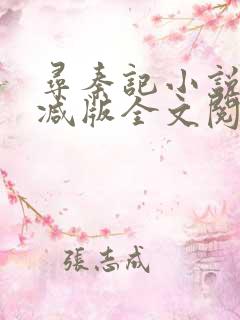 尋秦記小說
减版全文閱
張志成